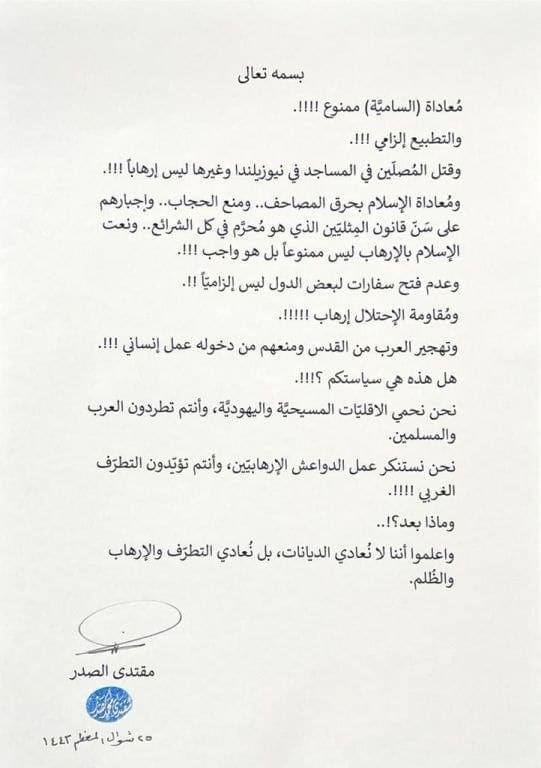 بسمه تعالى
مُعاداة (الساميَّة) ممنوع !!!!.
والتطبيع إلزامي !!!.
وقتل المُصلّين في المساجد في نيوزيلندا وغيرها ليس إرهاباً !!!.
ومُعاداة الإسلام بحرق المصاحف.. ومنع الحجاب.. وإجبارهم
على سَنّ قانون المِثليّين الذي هو مُحرَّم في كل الشرائع.. ونعت
الإسلام بالإرهاب ليس ممنوعاً بل هو واجب !!!.
وعدم فتح سفارات لبعض الدول ليس إلزاميّاً !!.
ومُقاومة الإحتلال إرهاب !!!!!.
وتهجير العرب من القدس ومنعهم من دخوله عمل إنساني !!!.
هل هذه هي سياستكم ؟!!!.
نحن نحمي الاقليّات المسيحيَّة واليهوديَّة، وأنتم تطردون العرب
والمسلمين.
نحن نستنكر عمل الدواعش الإرهابيّين، وأنتم تؤيّدون التطرّف
الغربي !!!!.
وماذا بعد؟!..
واعلموا أننا لا نُعادي الديانات، بل نُعادي التطرّف والإرهاب
والظُلم.
مقتدى الصدر
٢٥ شوال المعظم ١٤٤٣